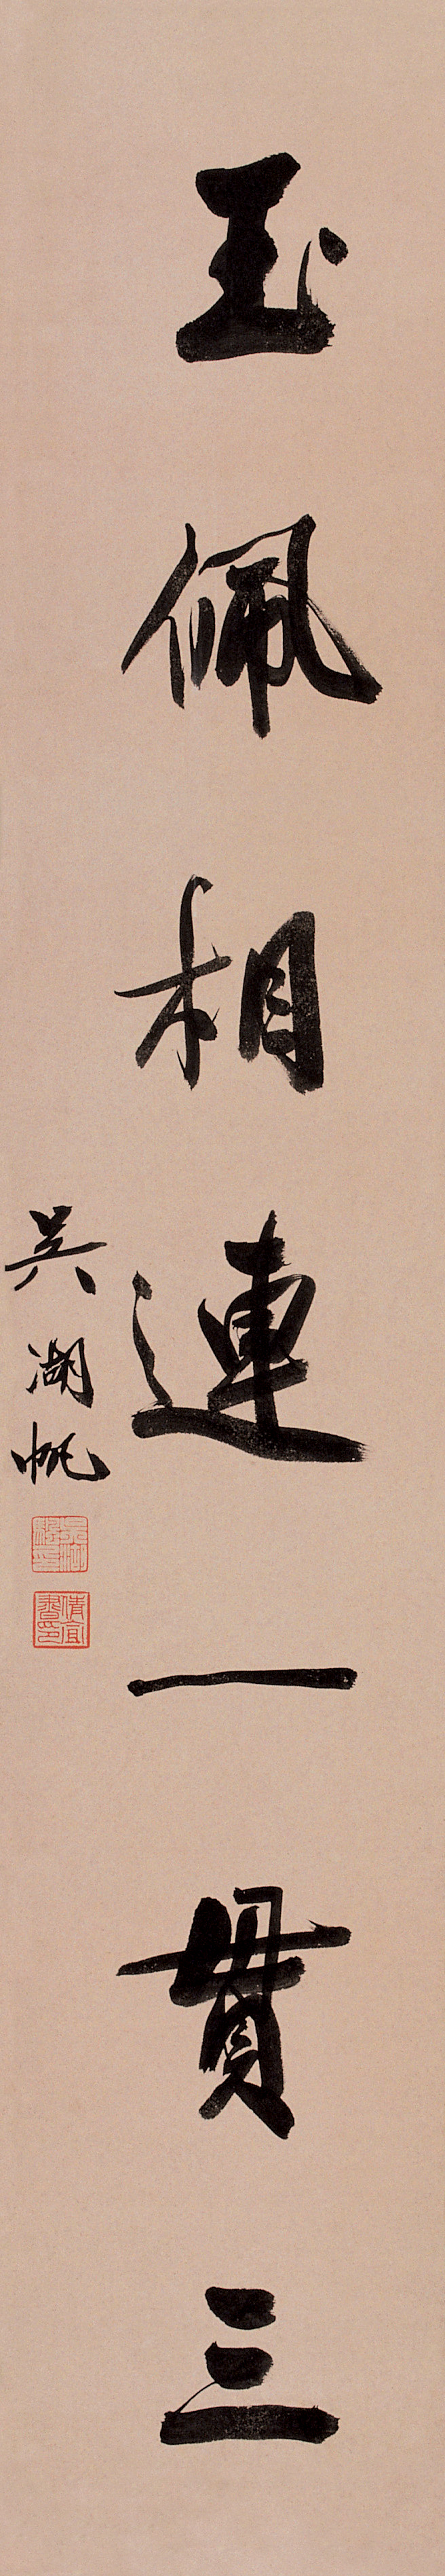 玉佩相連一貫三
吳湖帆
倩盦書畫